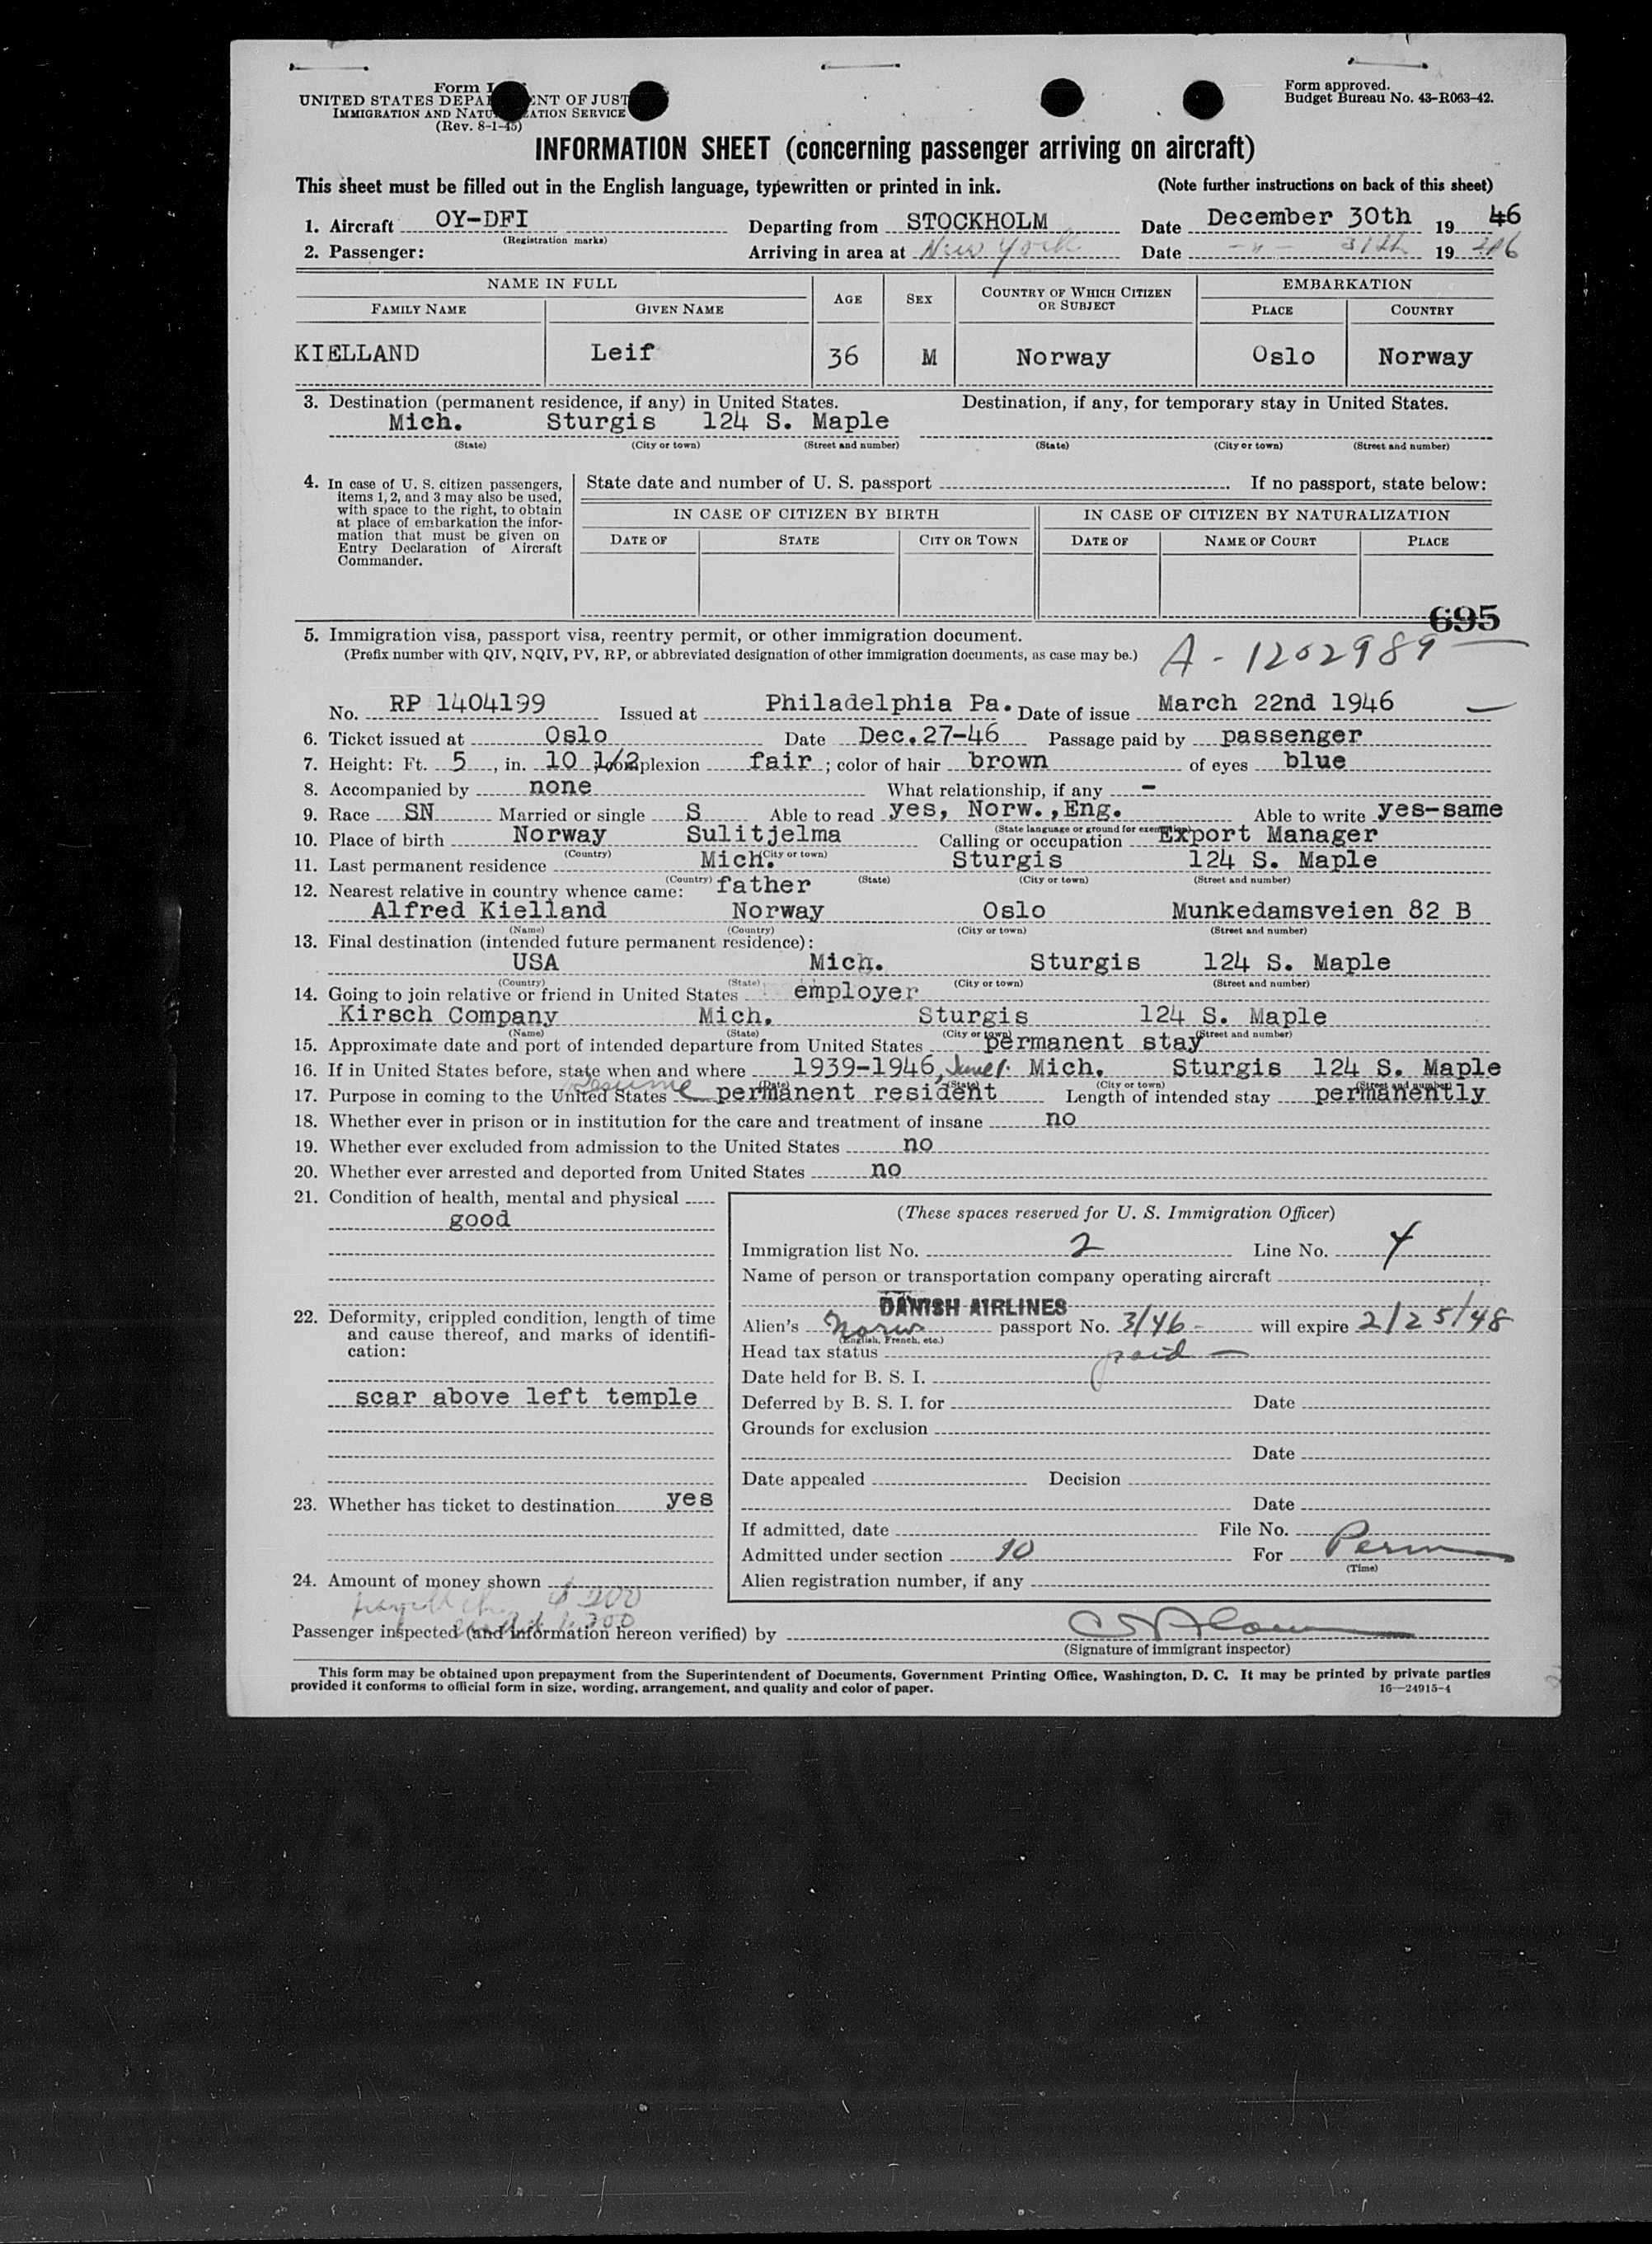 Form I
UNITED STATES DEPA ENT OF JUST
IMMIGRATION AND NATU ATION SERVICE
(Rev. 8-1-45)
Form approved.
Budget Bureau No. 43-R063-42.
INFORMATION SHEET (concerning passenger arriving on aircraft)
This sheet must be filled out in the English language, typewritten or printed in ink. (Note further instructions on back of this sheet)
1. Aircraft OY-DFI Departing from STOCKHOLM Date December 30th 19 46
(Registration marks)
2. Passenger: Arriving in area at New York Date -"- 31th 19 46
NAME IN FULL AGE SEX COUNTRY OF WHICH CITIZEN OR SUBJECT EMBARKATION
FAMILY NAME GIVEN NAME PLACE COUNTRY
KIELLAND Leif 36 M Norway Oslo Norway
3. Destination (permanent residence, if any) in United States. Destination, if any, for temporary stay in United States.
Mich. Sturgis 124 S. Maple
(State) (City or town) (Street and number) (State) (City or town) (Street and number)
4. In case of U. S. citizen passengers, items 1, 2, and 3 may also be used, with space to the right, to obtain at place of embarkation the information that must be given on Entry Declaration of Aircraft Commander.
State date and number of U. S. passport If no passport, state below:
IN CASE OF CITIZEN BY BIRTH IN CASE OF CITIZEN BY NATURALIZATION
DATE OF STATE CITY OR TOWN DATE OF NAME OF COURT PLACE
695
5. Immigration visa, passport visa, reentry permit, or other immigration document.
(Prefix number with QIV, NQIV, PV, RP, or abbreviated designation of other immigration documents, as case may be.) A-1202989
No. RP 1404199 Issued at Philadelphia Pa. Date of issue March 22nd 1946
6. Ticket issued at Oslo Date Dec.27-46 Passage paid by passenger
7. Height: Ft. 5, in. 10 1/2; complexion fair; color of hair brown of eyes blue
8. Accompanied by none What relationship, if any -
9. Race SN Married or single S Able to read yes, Norw.,Eng. Able to write yes-same
(State language or ground for exemption)
10. Place of birth Norway Sulitjelma Calling or occupation Export Manager
(Country) (City or town)
11. Last permanent residence Mich. Sturgis 124 S. Maple
(Country) (State) (City or town) (Street and number)
12. Nearest relative in country whence came: father
Alfred Kielland Norway Oslo Munkedamsveien 82 B
(Name) (Country) (City or town) (Street and number)
13. Final destination (intended future permanent residence):
USA Mich. Sturgis 124 S. Maple
(Country) (State) (City or town) (Street and number)
14. Going to join relative or friend in United States employer
Kirsch Company Mich. Sturgis 124 S. Maple
(Name) (State) (City or town) (Street and number)
15. Approximate date and port of intended departure from United States permanent stay
16. If in United States before, state when and where 1939-1946, June 1. Mich. Sturgis 124 S. Maple
(Date) (State) (City or town) (Street and number)
resume
17. Purpose in coming to the United States permanent resident Length of intended stay permanently
18. Whether ever in prison or in institution for the care and treatment of insane no
19. Whether ever excluded from admission to the United States no
20. Whether ever arrested and deported from United States no
21. Condition of health, mental and physical
good
22. Deformity, crippled condition, length of time and cause thereof, and marks of identification:
scar above left temple
23. Whether has ticket to destination yes
24. Amount of money shown $ 200
(These spaces reserved for U. S. Immigration Officer)
Immigration list No. 2 Line No. 4
Name of person or transportation company operating aircraft
DANISH AIRLINES
Alien's Norw passport No. 3/46 - will expire 2/25/48
(English, French, etc.)
Head tax status paid
Date held for B. S. I.
Deferred by B. S. I. for Date
Grounds for exclusion
Date
Date appealed Decision
Date
If admitted, date File No.
Admitted under section 10 For Perm
(Time)
Alien registration number, if any
Passenger inspected (and information hereon verified) by
(Signature of immigrant inspector)
This form may be obtained upon prepayment from the Superintendent of Documents, Government Printing Office, Washington, D. C. It may be printed by private parties
provided it conforms to official form in size, wording, arrangement, and quality and color of paper. 16—24915-4